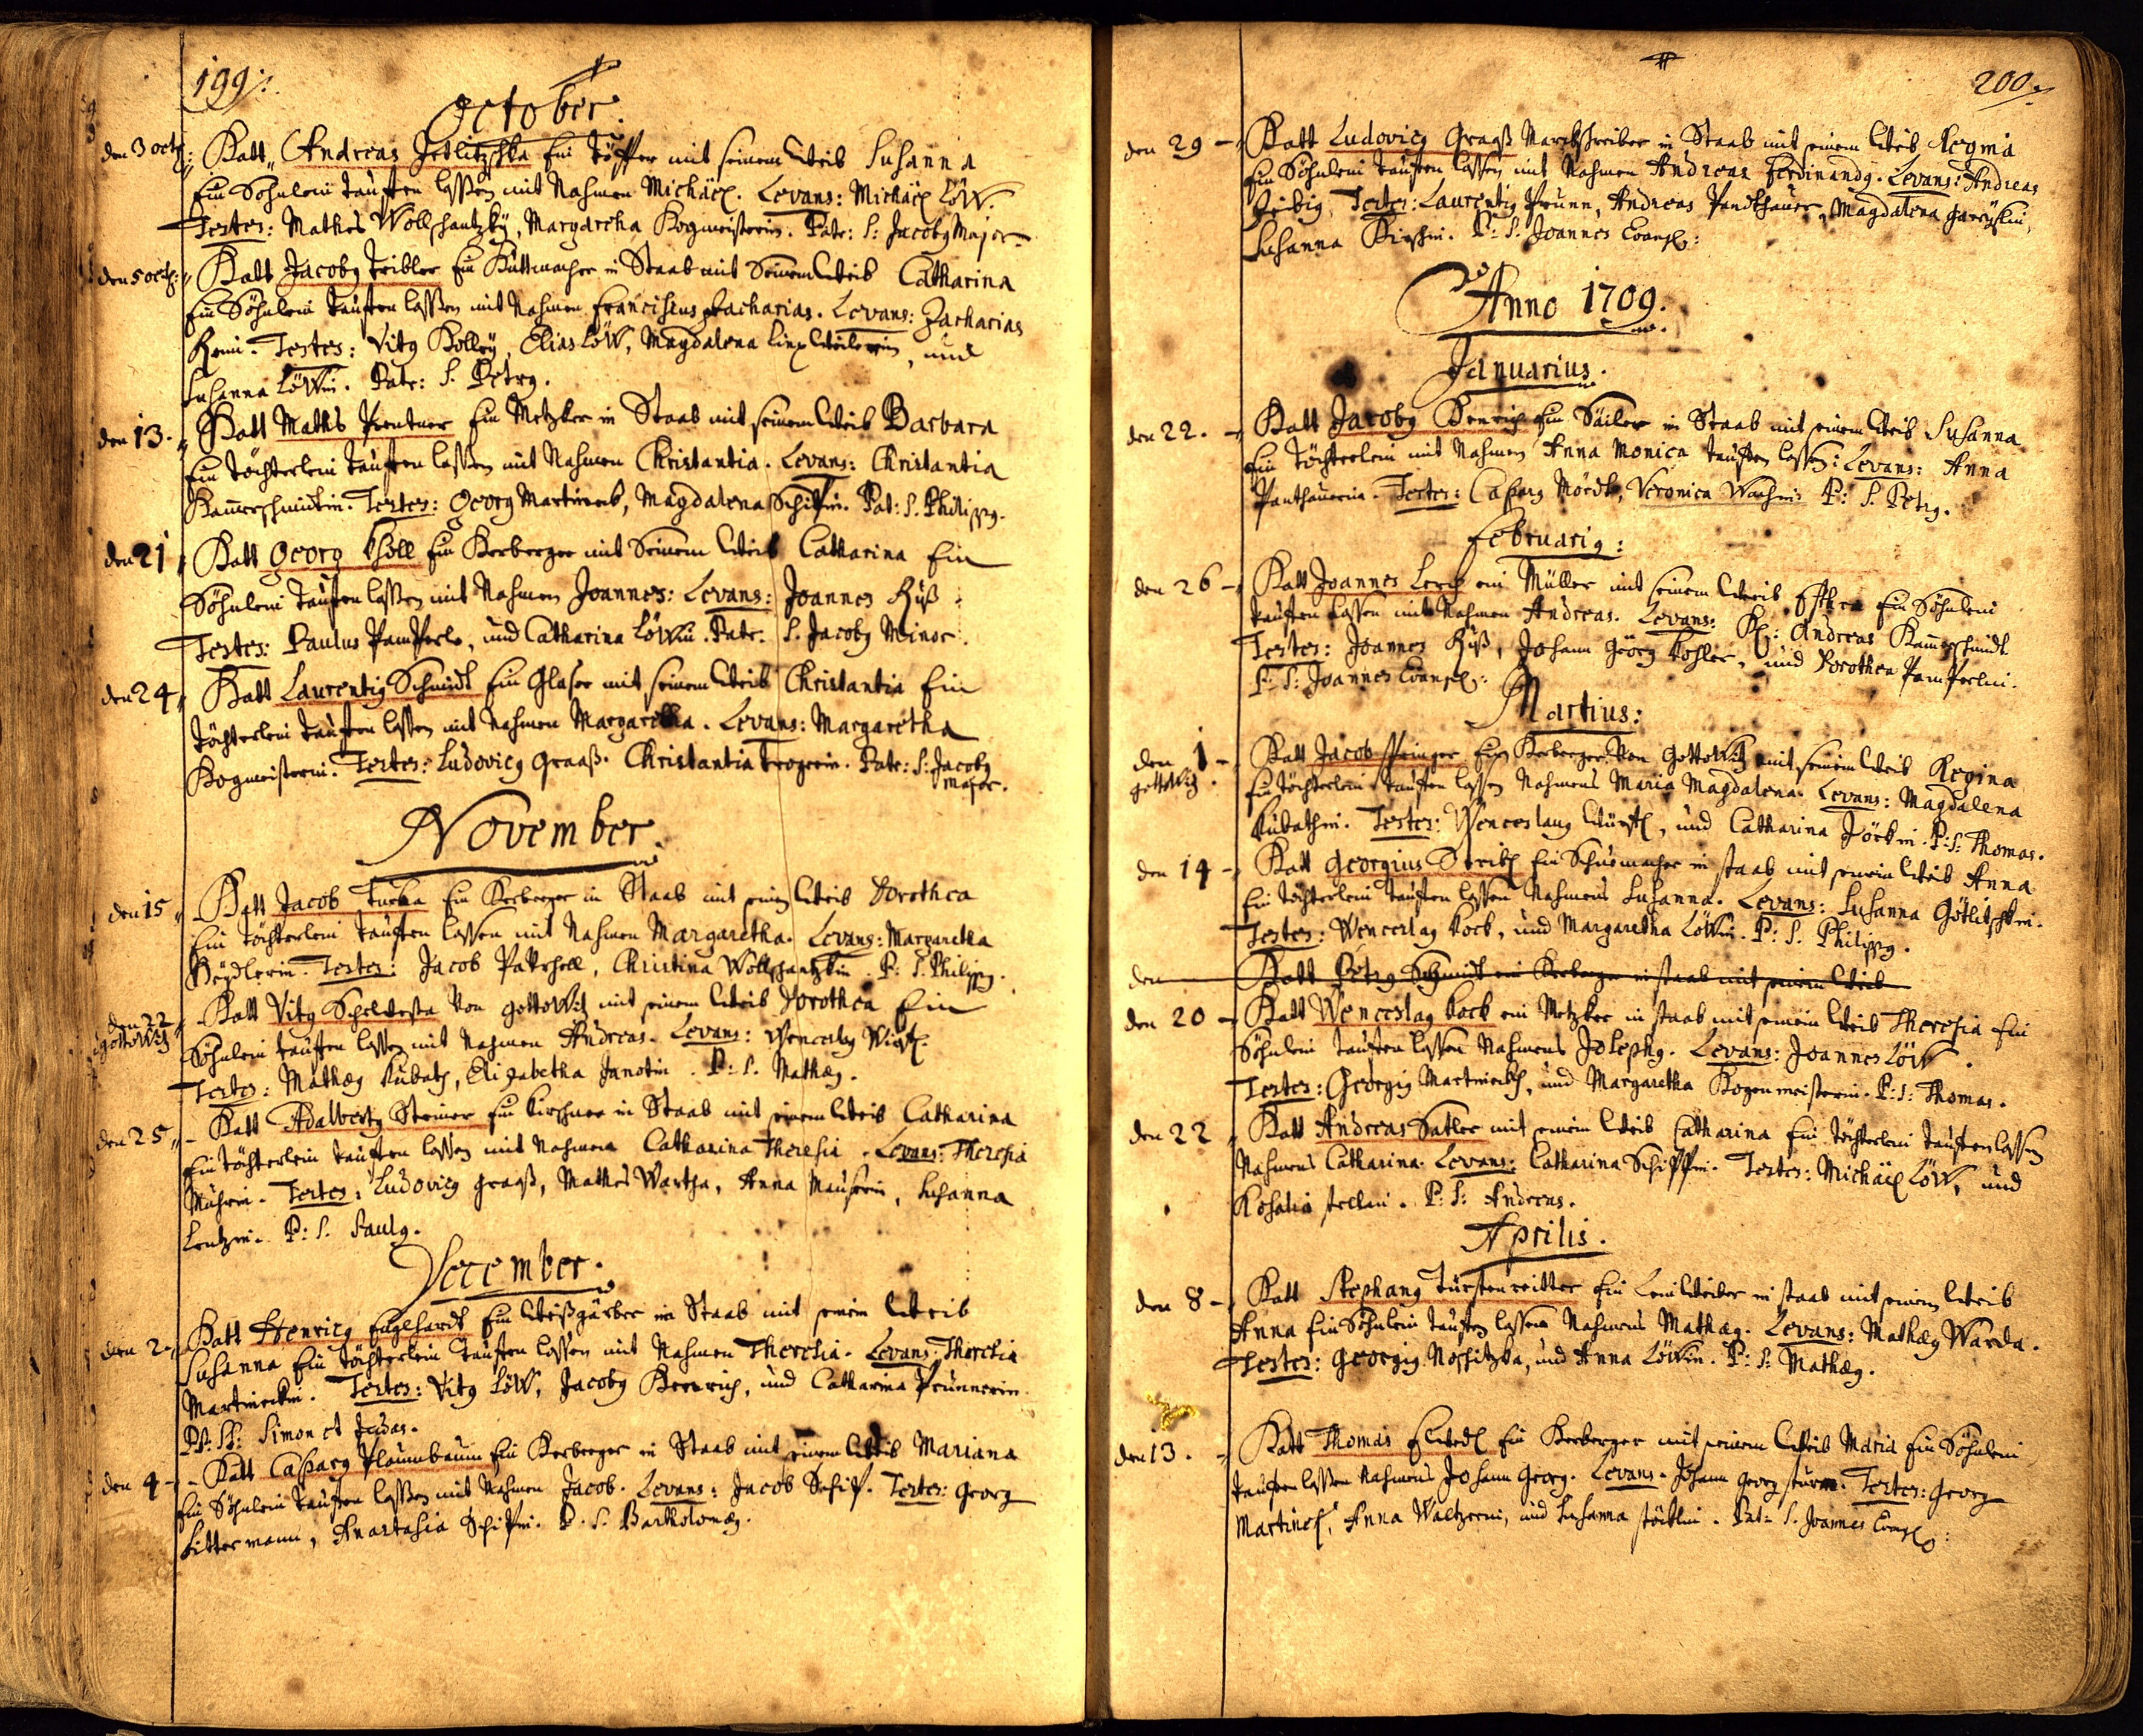 199:
October.
den 3 octb: Hatt Andreas Jetlitzschka Ein Töpffer mit seinem Weib Susanna
Ein Söhnlein tauffen lassen mit Nahmen Michäel. Levans: Michäel Löw.
Testes: Mathes Wollschantzkÿ, Margaretha Bogmeisterin. Patr: S: Jacobg Major.
den 5 octb: Hatt Jacobg Tribler Ein Huttmacher in Staab mit Seinem Weib Catharina
Ein Söhnlein tauffen lassen mit Nahmen Franciscus Zacharias. Levans: Zacharias
Testes: Vitg Kolleÿ, Elias Löw, Magdalena, und
Susanna Löwin. Patr: S. Petrg.
den 13. Hatt Maths Prentner Ein Metzker in Staab mit seinem Weib Barbara
Ein Töchterlein tauffen lassen mit Nahmen Christantia. Levans: Christantia
Kamerschmidtin. Testes: Georg Martineck, Magdalena Schiffin. Pat: S. Philippg.
den 21 Hatt Georg Ein Herberger mit Seinem Weib Catharina Ein
Söhnlein tauffen lassen mit Nahmen Joannes: Levans: Joannes Huß.
Testes: Paulus Pamperle, und Catharina Löwin. Patr. S. Jacobg Minor.
den 24 Hatt Laurentig Schmidt Ein Glaser mit seinem Weib Christantia Ein
Töchterlein tauffen lassen mit Nahmen Margaretha. Levans: Margaretha
Bogmeisterin. Testes: Ludovicg Graaß. Christantia Trogerin. Patr: S: Jacobg
major.
November.
den 15 Hatt Jacob Turka Ein Herberger in Staab mit seinem Weib Dorothea
Ein Töchterlein tauffen lassen mit Nahmen Margaretha. Levans: Margaretha
Testes: Jacob, Christina Wollschantzkin. P: S. Philippg.
den 22 Hatt Vitg von Gottowitz mit seinem Weib Dorothea Ein
gottowitz Söhnlein tauffen lassen mit Nahmen Andreas. Levans: Wenceslg
Testes: Mathæg Kubath, Elizabetha Janotin. P: S. Mathæg.
den 25 Hatt Adalbertg Steiner Ein Kirschner in Staab mit seinem Weib Catharina
Ein Töchterlein tauffen lassen mit Nahmen Catharina Theresia. Levans: Theresia
Testes: Ludovicg Graaß, Mathes Wartha, Anna Mauserin, Susanna
P: S. Paulg.
December.
den 2 Hatt Henricg Engelhardt Ein Weißgärber in Staab mit seinem Weib
Susanna Ein Töchterlein tauffen lassen mit Nahmen Theresia. Levans: Theresia
Martineckin. Testes: Vitg Löw, Jacobg Henrich, und Catharina Prunnerin.
PP: SS: Simon et Judas.
den 4 Hatt Casparg Plaumbaum Ein Herberger in Staab mit seinem Weib Mariana
Ein Söhnlein tauffen lassen mit Nahmen Jacob. Levans: Jacob Schiff. Testes: Georg
Littermann, Anastasia Schiffin. P. S. Bartholomæg.
200.
den 29 Hatt Ludovicg Graaß in Staab mit seinem Weib Regina
Ein Söhnlein tauffen lassen mit Nahmen Andreas Ferdinandg. Levans: Andreas
Testes: Laurentig Prunn, Andreas Panthauer, Magdalena
Susanna P: S. Joannes Evangl:
Anno 1709.
Januarius.
den 22. Hatt Jacobg Henrich Ein Säiler in Staab mit seinem Weib Susanna
Ein Töchterlein mit Nahmen Anna Monica tauffen lassen: Levans: Anna
Panthauerin. Testes: Casparg, Veronica P: S. Petrg.
Februarig:
den 26 Hatt Joannes Lerch ein Müller mit seinem Weib Esther Ein Söhnlein
tauffen lassen mit Nahmen Andreas. Levans: Andreas Kamerschmidt
Testes: Joannes Huß, Johann Georg Kohler, und Dorothea Pamperlin.
P: S: Joannes Evangl:
Martius:
den 1 Hatt Jacob Springer Ein Herberger von Gottowitz mit seinem Weib Regina
gottowitz. Ein Töchterlein tauffen lassen Nahmens Maria Magdalena. Levans: Magdalena
Kubathin. Testes: Wenceslaug, und Catharina Jöckin. P: S: Thomas.
den 14 Hatt Georgius Ein Schuemacher in staab mit seinem Weib Anna
Ein Töchterlein tauffen lassen Nahmens Susanna. Levans: Susanna Götlitschkin.
Testes: Wenceslag Kock, und Margaretha Löwin. P: S. Philippg.
den Hatt Petrg Schmidt ein Herberger in staab mit seinem Weib
den 20 Hatt Wenceslag Kock ein Metzker in staab mit seinem Weib Theresia Ein
Söhnlein tauffen lassen Nahmens Josephg. Levans: Joannes Löw.
Testes: Georgig Martineckh, und Margaretha Bogenmeisterin. P: S: Thomas.
den 22 Hatt Andreas Satler mit seinem Weib Catharina Ein Töchterlein tauffen lassen
Nahmens Catharina. Levans: Catharina Schiffin. Testes: Michäel Löw, und
Rosalia P: S: Andreas.
Aprilis.
den 8 Hatt Stephang Türstenreitter Ein Leinweber in staab mit seinem Weib
Anna Ein Söhnlein tauffen lassen Nahmens Mathæg. Levans: Mathæg Warda.
Testes: Georgig Noschitzka, und Anna Löwin. P: S: Mathæg.
den 13. Hatt Thomas Ein Herberger mit seinem Weib Maria Ein Söhnlein
tauffen lassen Nahmens Johann Georg. Levans: Johann Georg Sturm. Testes: Georg
Martinek, Anna Waltzerin, und Susanna Stöcklin. Pat: S. Joannes Evangl: